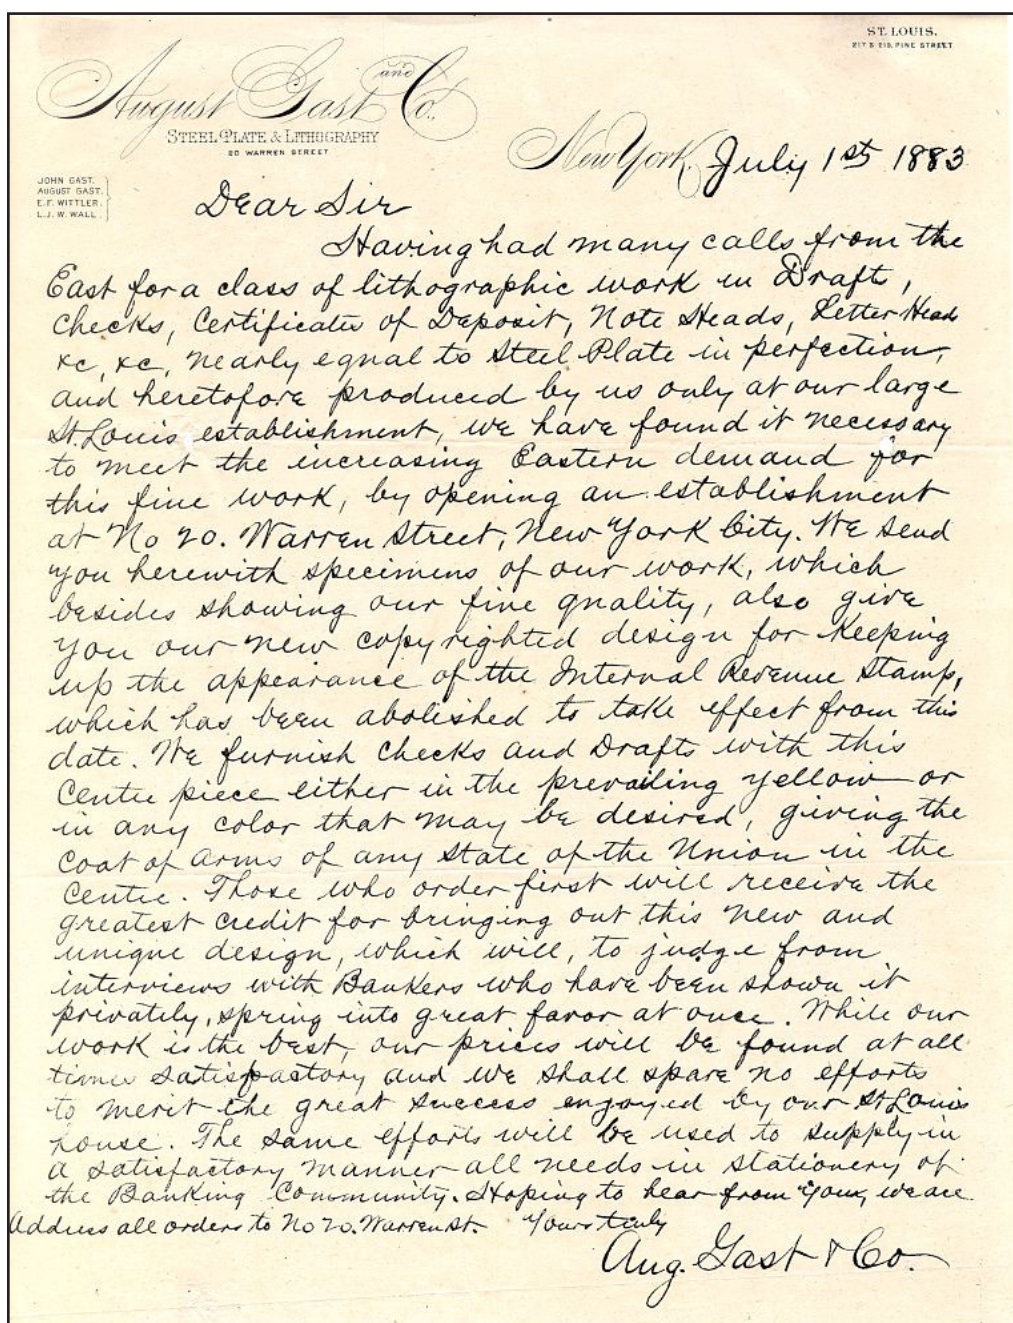 ST. LOUIS.
217 & 219, PINE STREET
August Gast and Co.
STEEL PLATE & LITHOGRAPHY
20 WARREN STREET
New York, July 1st 1883
JOHN GAST.
AUGUST GAST.
E.F. WITTLER.
L.J.W. WALL.
Dear Sir
Having had many calls from the
East for a class of lithographic work in Draft,
Checks, Certificates of Deposit, Note Heads, Letter Heads
&c, &c, nearly equal to Steel Plate in perfection,
and heretofore produced by us only at our large
St. Louis establishment, we have found it necessary
to meet the increasing Eastern demand for
this fine work, by opening an establishment
at No 20. Warren Street, New York City. We send
you herewith specimens of our work, which
besides showing our fine quality, also give
you our new copyrighted design for keeping
up the appearance of the Internal Revenue Stamp,
which has been abolished to take effect from this
date. We furnish Checks and Drafts with this
Centre piece either in the prevailing yellow or
in any color that may be desired, giving the
Coat of Arms of any State of the Union in the
Centre. Those who order first will receive the
greatest credit for bringing out this new and
unique design, which will, to judge from
interviews with Bankers who have been shown it
privately, spring into great favor at once. While our
work is the best, our prices will be found at all
times satisfactory and we shall spare no efforts
to merit the great success enjoyed by our St Louis
house. The same efforts will be used to supply in
a satisfactory manner all needs in stationery of
the Banking Community. Hoping to hear from you, we are
Address all orders to No 20. Warren St. Yours truly
Aug. Gast & Co.